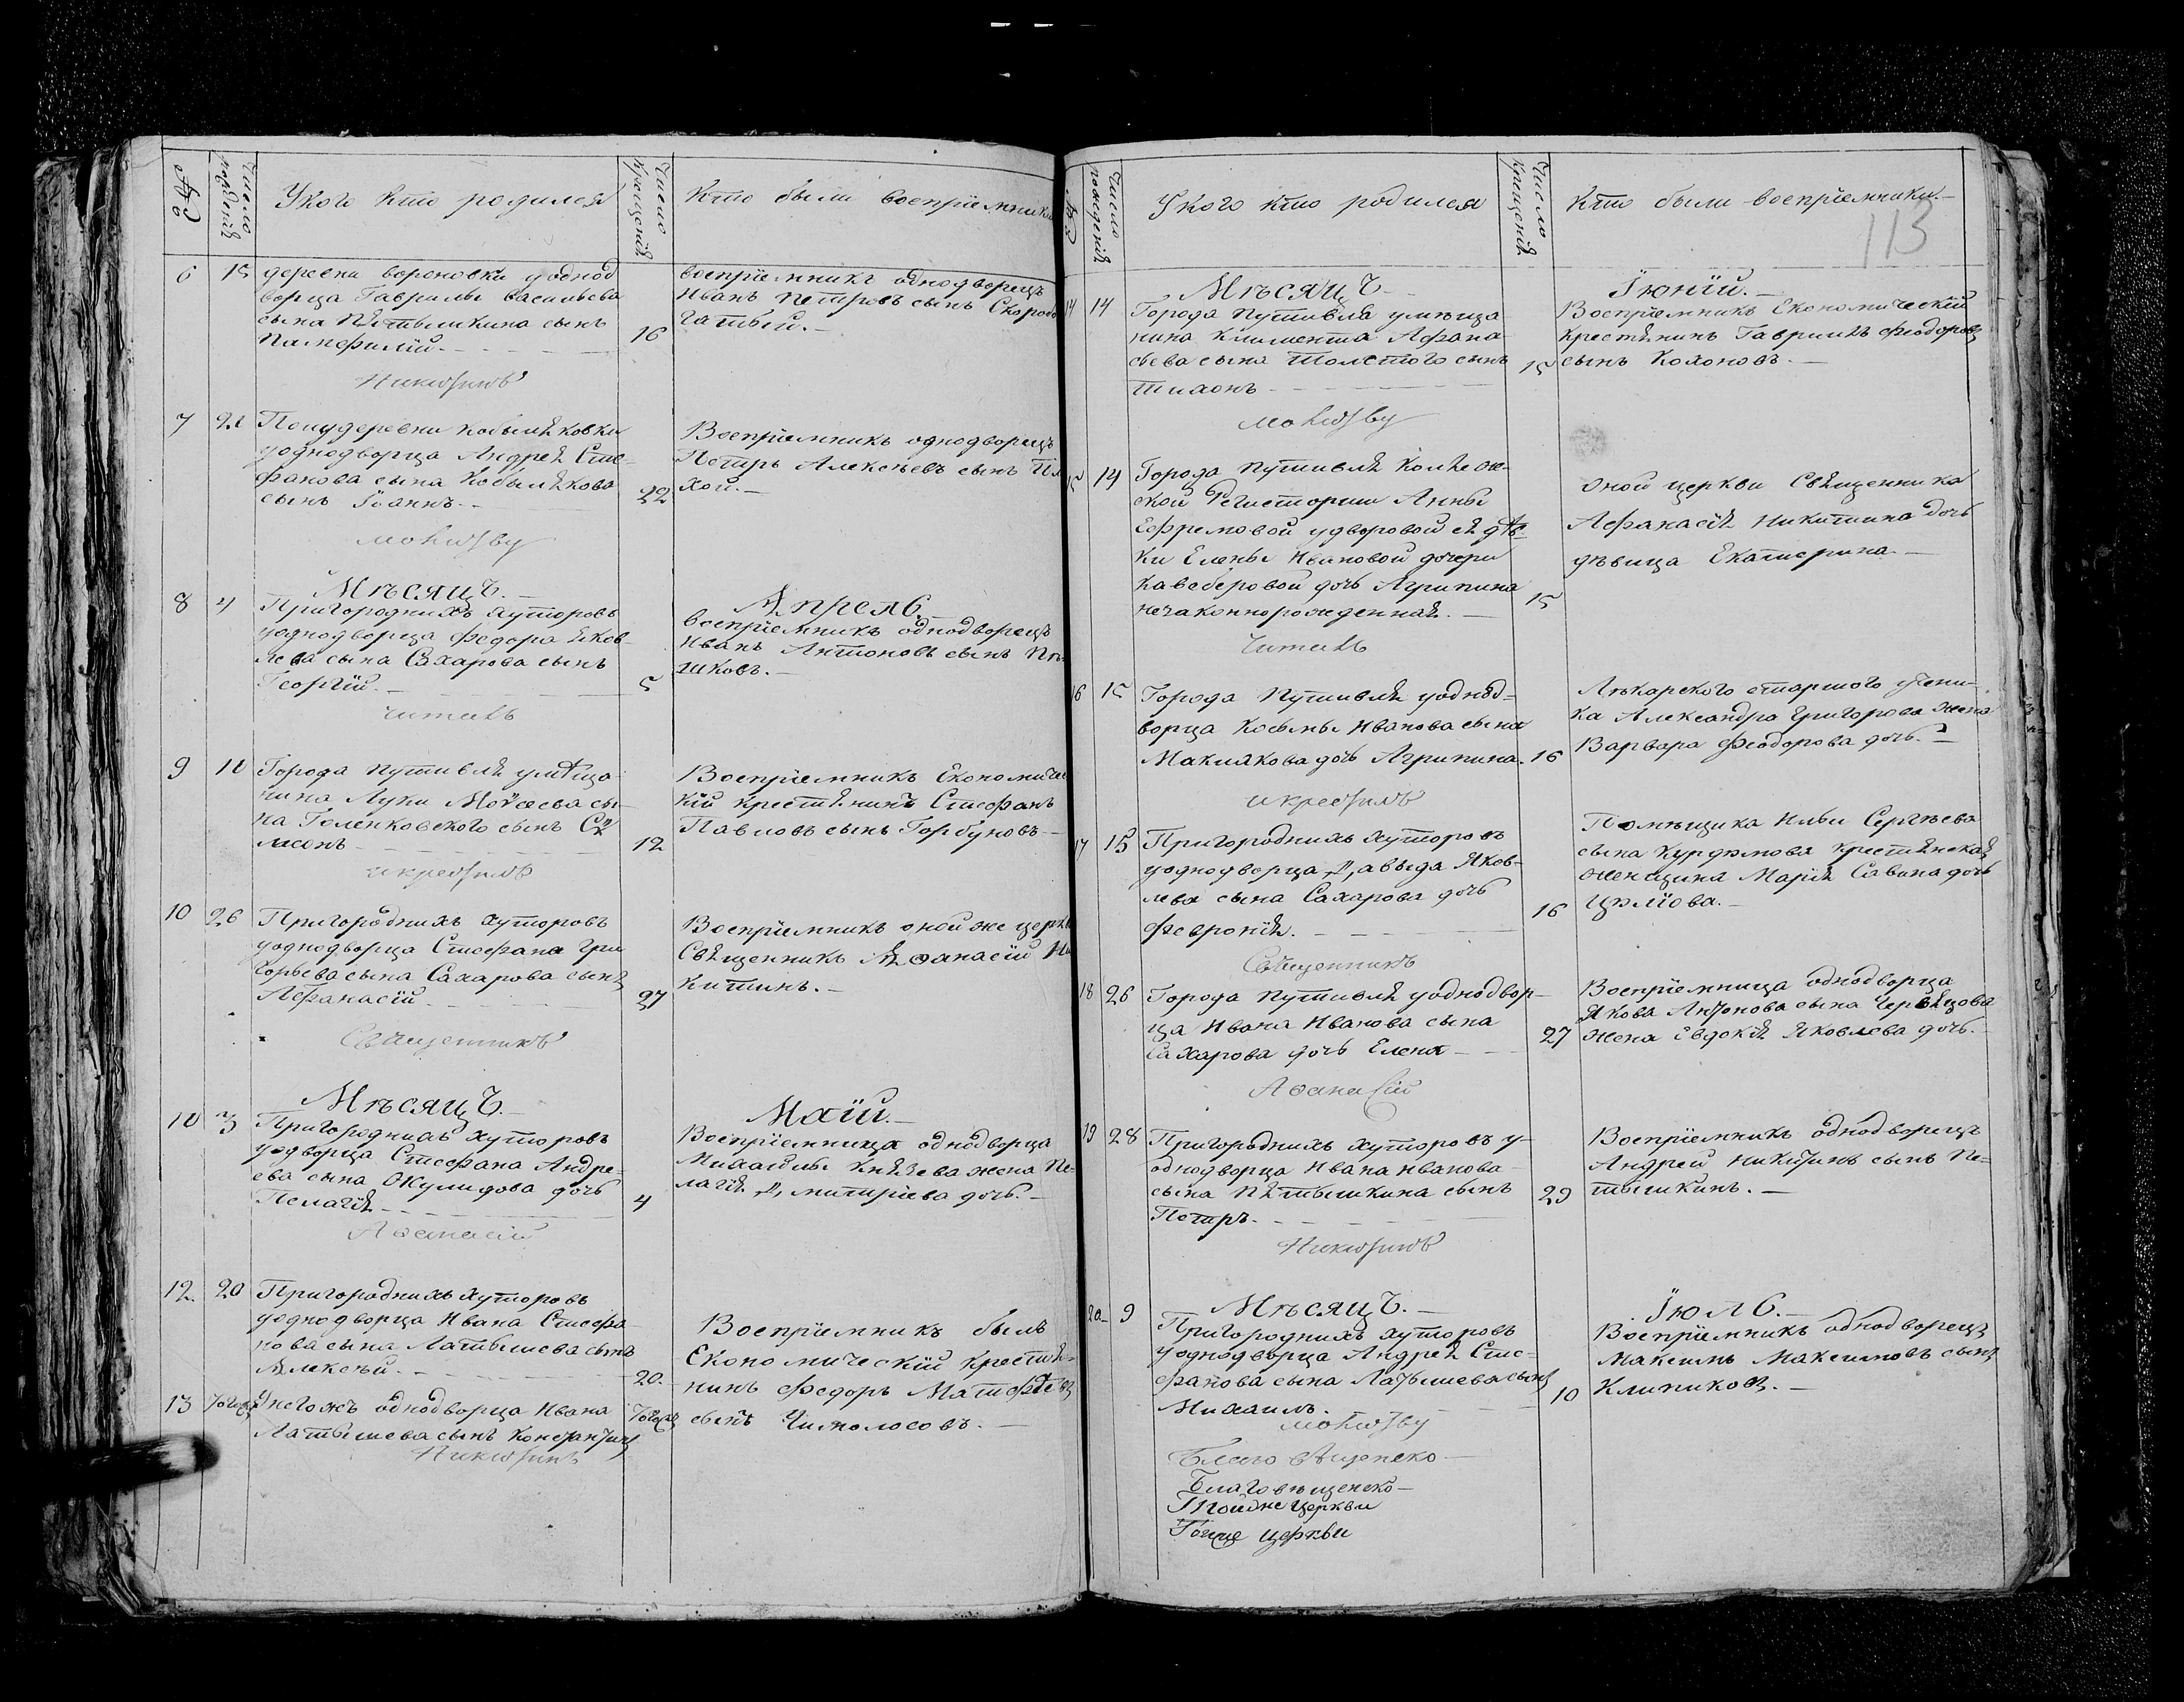 №
Число рожденій
У кого кто родился
Число крещенія
Кто были воспріемники
6
15
деревни вороновки уоднод
ворца Гаврилы васильева
сына Пятышкина сынъ
Памфилій. -
16
воспріемникъ однодворецъ
Иванъ Петровъ сынъ Скоробо
гатый. -
Никитинъ
7
21
уоднодворца Андрея Сте-
фанова сына Кобылякова
сынъ Іоаннъ. -
22
Воспріемникъ однодворецъ
Петръ Алексѣевъ сынъ
хой. -
Мѣсяцъ. -
Апрель. -
8
4
Пригороднихъ хуторовъ
уоднодворца Федора Яков-
лева сына Сахарова сынъ
Георгій. -
5
воспріемникъ однодворецъ
Иванъ Антоновъ сынъ
шковъ. -
читалъ
9
11
Города Путивля умѣща-
нина Луки Моѵсеева сы-
на Голенковского сынъ Сѵ
меонъ -
12
Воспріемникъ Економичес
кій крестянинъ Стефанъ
Павловъ сынъ Горбуновъ -
10
26
Пригороднихъ хуторовъ
уоднодворца Стефана Гри
горьева сына Сахарова сынъ
Афанасій. -
27
Воспріемникъ оной же церкв
Священникъ Аѳанасій Ни
китинъ. -
Священникъ
Мѣсяцъ. -
Маій. -
11
3
Пригороднихъ хуторовъ
уодворца Стефана Андре-
ева сына Окулидова дочь
Пелагія. -
4
Воспріемница однодворца
Михайлы Князева жена Пе-
лагія Дмитріева дочь. -
Аѳанасій
12.
20
Пригороднихъ хуторовъ
уоднодворца Ивана Стефа
нова сына Латышева сынъ
Алексѣй. -
20.
Воспріемникъ былъ
Економическій крестян-
нинъ Федоръ Матфѣевъ
сынъ Чимолосовъ. -
13
Тогожъ
Унегожъ однодворца Ивана
Латышева сынъ Константинъ
Тогожъ
Никитинъ
№
Число рожденія
У кого кто родился
Число крещенія
Кто были воспріемники. -
113
Мѣсяцъ -
Іюній. -
14
14
Города Путивля умѣща
нина Климента Афана
сьева сына Толстого сынъ
Тихонъ -
15
Воспріемникъ Економическій
крестянинъ Гавріилъ Феодоровъ
сынъ Кохоновъ. -
15
14
Города Путивля Колѣеж-
ской Регистории Анны
Ефремовой удворовой ея дѣв-
ки Елены Ивановой дочери
Каведеровой дочь Агрипина
незаконнорожденная. -
15
Оной церкви Священника
Афанасія Никитина дочь
дѣвица Екатерина. -
Читалъ
16
15
Города Путивля уоднод-
ворца Космы Иванова сына
Маклакова дочь Агрипина.
16
Лѣкарского старшого учени-
ка Александра Григорова жена
Варвара Феодорова дочь. -
17
15
Пригороднихъ хуторовъ
уоднодворца Давыда Яков-
лева сына Сахарова дочь
Февронія. -
16
Помѣщика Ильи Сергѣева
сына Курдюмова крестянская
женщина Марія Савина дочь
Священникъ
18
26
Города Путивля уоднодвор-
ца Ивана Иванова сына
Сахарова дочь Елена -
27
Воспріемница однодворца
Якова Антонова сына Червяцова
жена Евдокія Яковлева дочь. -
Аѳанасій
19
28
Пригороднихъ хуторовъ у-
однодворца Ивана иванова
сына Пятышкина сынъ
Петръ. -
29
Воспріемникъ однодворецъ
Андрей Никитинъ сынъ Пе-
тышкинъ. -
Никитинъ
Мѣсяцъ. -
Іюль. -
20
9
Пригороднихъ хуторовъ
уоднодворца Андрея Сте-
фанова сына Латышева сынъ
Михаилъ.
10
Воспріемникъ однодворецъ
Максимъ Максимовъ сынъ
Клипиковъ. -
Благовѣщенско -
Благовѣщенско -
церкви
церкви